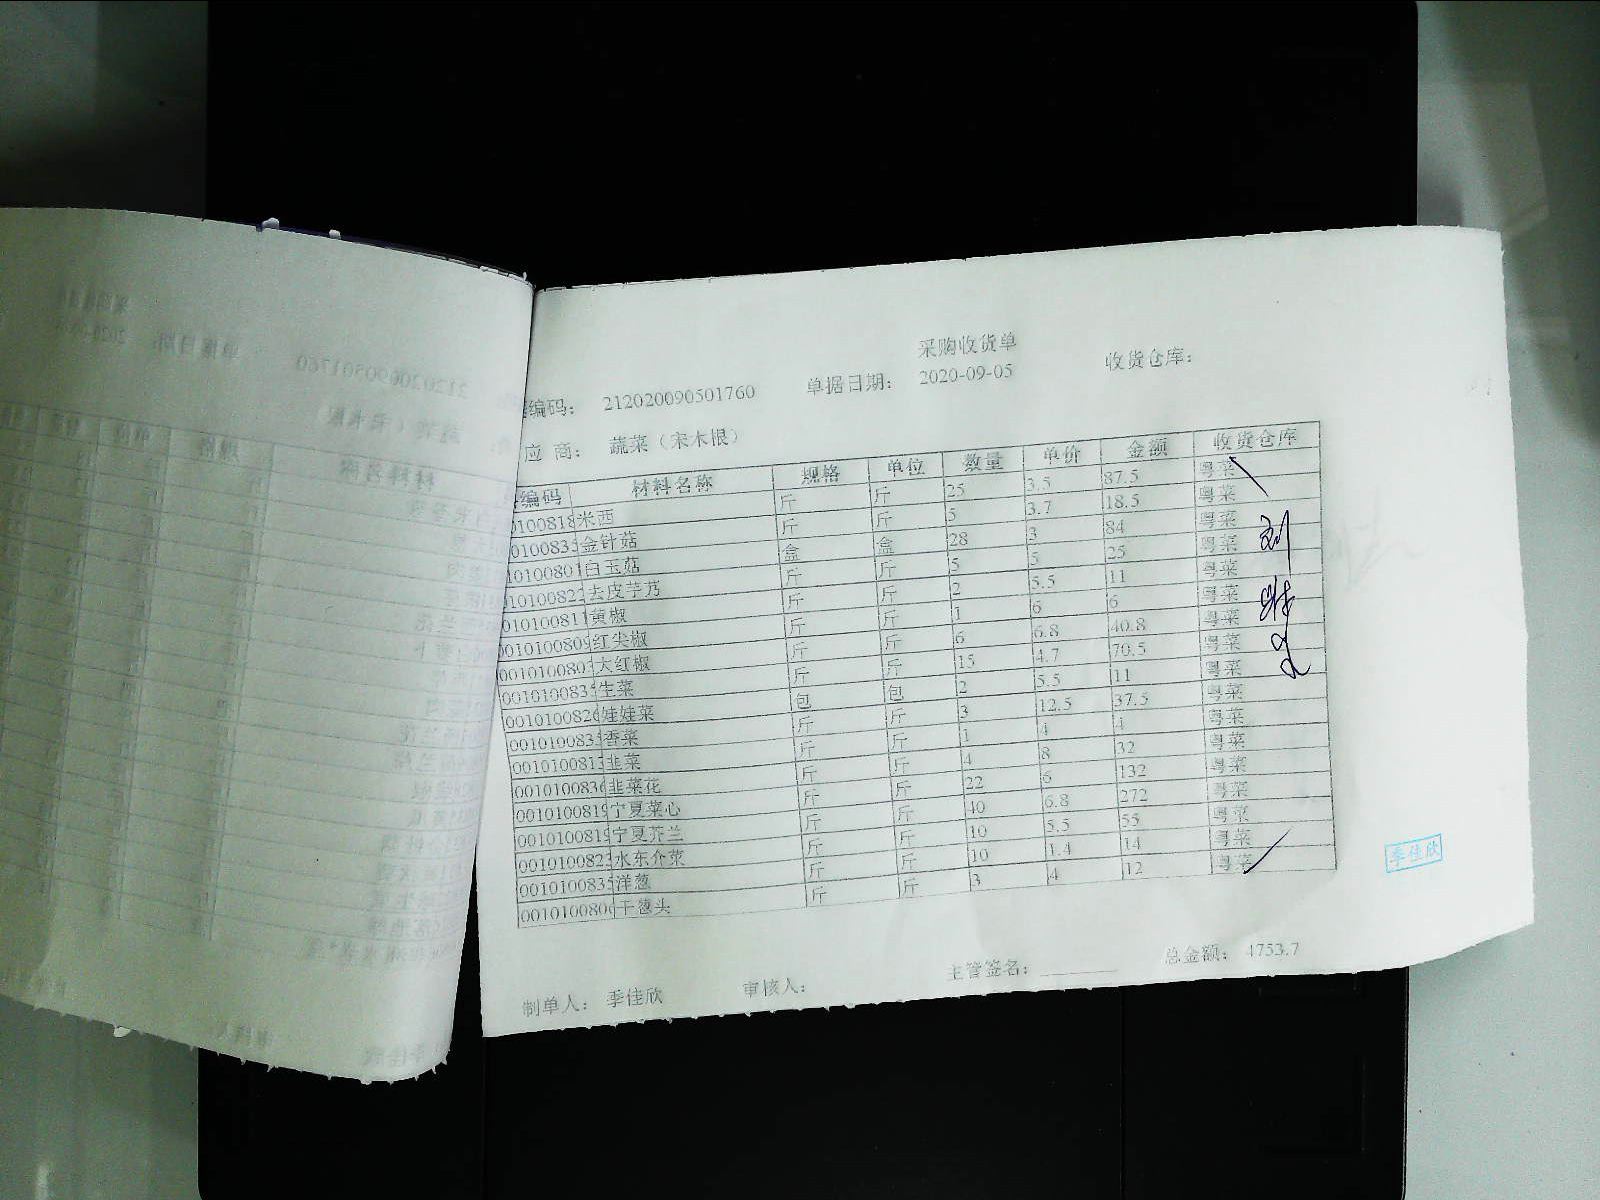 采购收货单
编码： 212020090501760 单据日期： 2020-09-05 收货仓库：
应 商： 蔬菜（宋木根）
编码 材料名称 规格 单位 数量 单价 金额 收货仓库
0100818 米西 斤 斤 25 3.5 87.5 粤菜
0100835 金针菇 斤 斤 5 3.7 18.5 粤菜
0100801 白玉菇 盒 盒 28 3 84 粤菜
0100822 去皮芋艿 斤 斤 5 5 25 粤菜
0100811 黄椒 斤 斤 2 5.5 11 粤菜
010100809 红尖椒 斤 斤 1 6 6 粤菜
010100803 大红椒 斤 斤 6 6.8 40.8 粤菜
001010083 生菜 斤 斤 15 4.7 70.5 粤菜
001010082 娃娃菜 包 包 2 5.5 11 粤菜
001010083 香菜 斤 斤 3 12.5 37.5 粤菜
001010081 韭菜 斤 斤 1 4 4 粤菜
001010083 韭菜花 斤 斤 4 8 32 粤菜
001010081 宁夏菜心 斤 斤 22 6 132 粤菜
001010081 宁夏芥兰 斤 斤 40 6.8 272 粤菜
001010082 水东介菜 斤 斤 10 5.5 55 粤菜
001010083 洋葱 斤 斤 10 1.4 14 粤菜
001010080 干葱头 斤 斤 3 4 12 粤菜
季佳欣
制单人： 季佳欣 审核人： 主管签名： 总金额： 4753.7